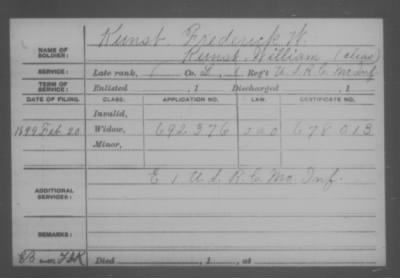 NAME OF SOLDIER: Kunst, Frederick W.
Kunst, William (alias)
SERVICE: Late rank, Co. L, 1 Reg't U.S.R.C. Mo Inf
TERM OF SERVICE: Enlisted , 1 Discharged , 1
DATE OF FILING. CLASS. APPLICATION NO. LAW. CERTIFICATE NO.
Invalid,
1899 Feb 20 Widow, 692376 678013
Minor,
ADDITIONAL SERVICES: E 1 U.S.R.C. Mo. Inf.
REMARKS:
Died , 1 , at